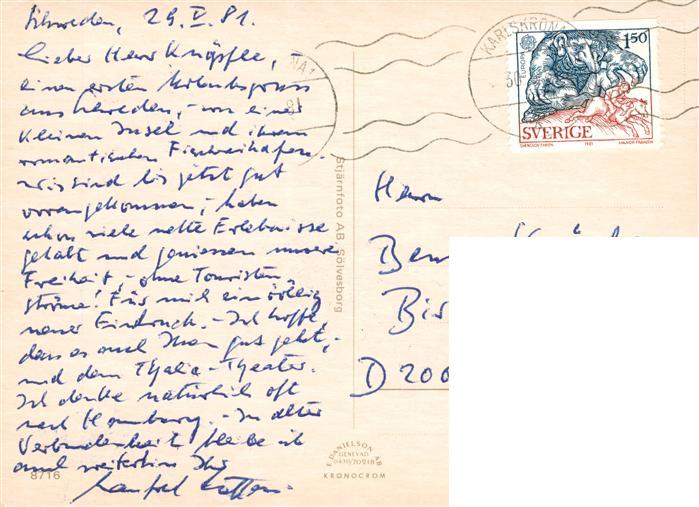 Schweden, 29.V.81.
Lieber Herr Knöpfle, -
einen ersten Urlaubsgruss
aus Schweden, - von einer
kleinen Insel und ihrem
romantischen Fischereihafen. -
wir sind bis jetzt gut
vorangekommen, - haben
schon viele nette Erlebnisse
gehabt und geniessen unsere
Freiheit, - ohne Touristen-
ströme! Für mich ein völlig
neuer Eindruck. - Ich hoffe,
dass es auch Ihnen gut geht, -
und dem Thalia-Theater.
Ich denke natürlich oft
nach Hamburg. - In alter
Verbundenheit bleibe ich
auch weiterhin Ihr
8716
Stjärnfoto AB, Sölvesborg
E. DANIELSON AB
GENEVAD
0430/70218
KRONOCROM
KARLSKRONA
30
NA 1
81
EUROPA
1.50
SVERIGE
1981
Herrn
Ben
Bis
D 200